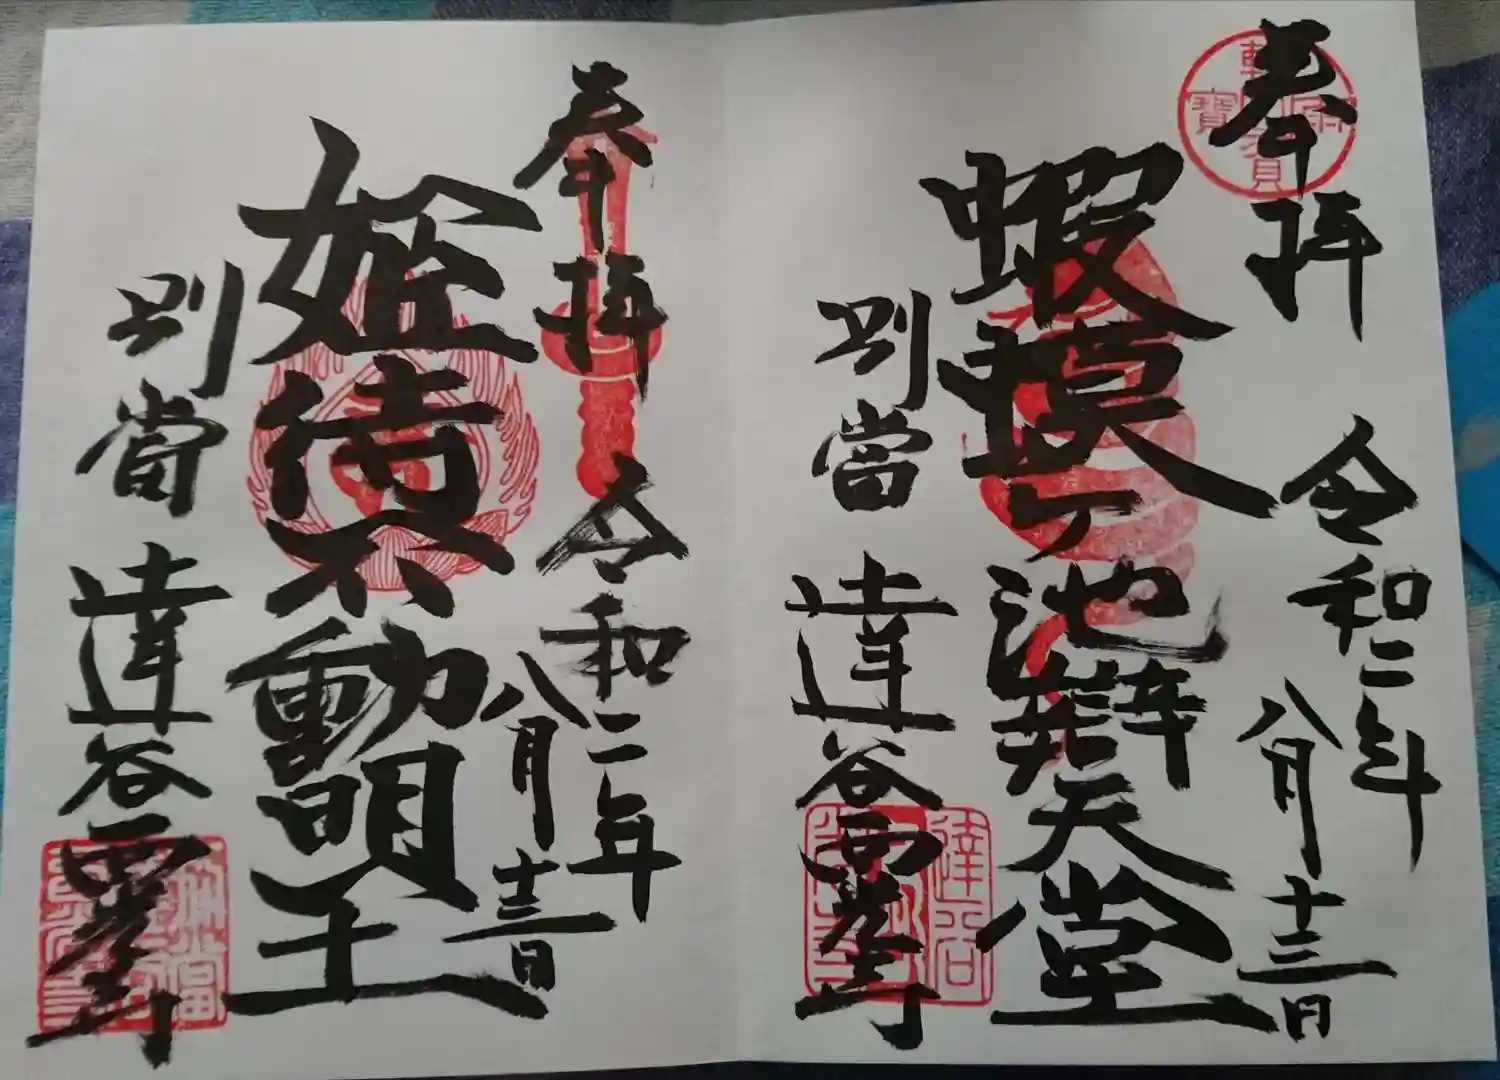 奉拝
令和二年
八月十三日
蝦蟆ヶ池辯天堂
別當
達谷西光寺
奉拝
令和二年
八月十三日
姫待不動明王
別當
達谷西光寺